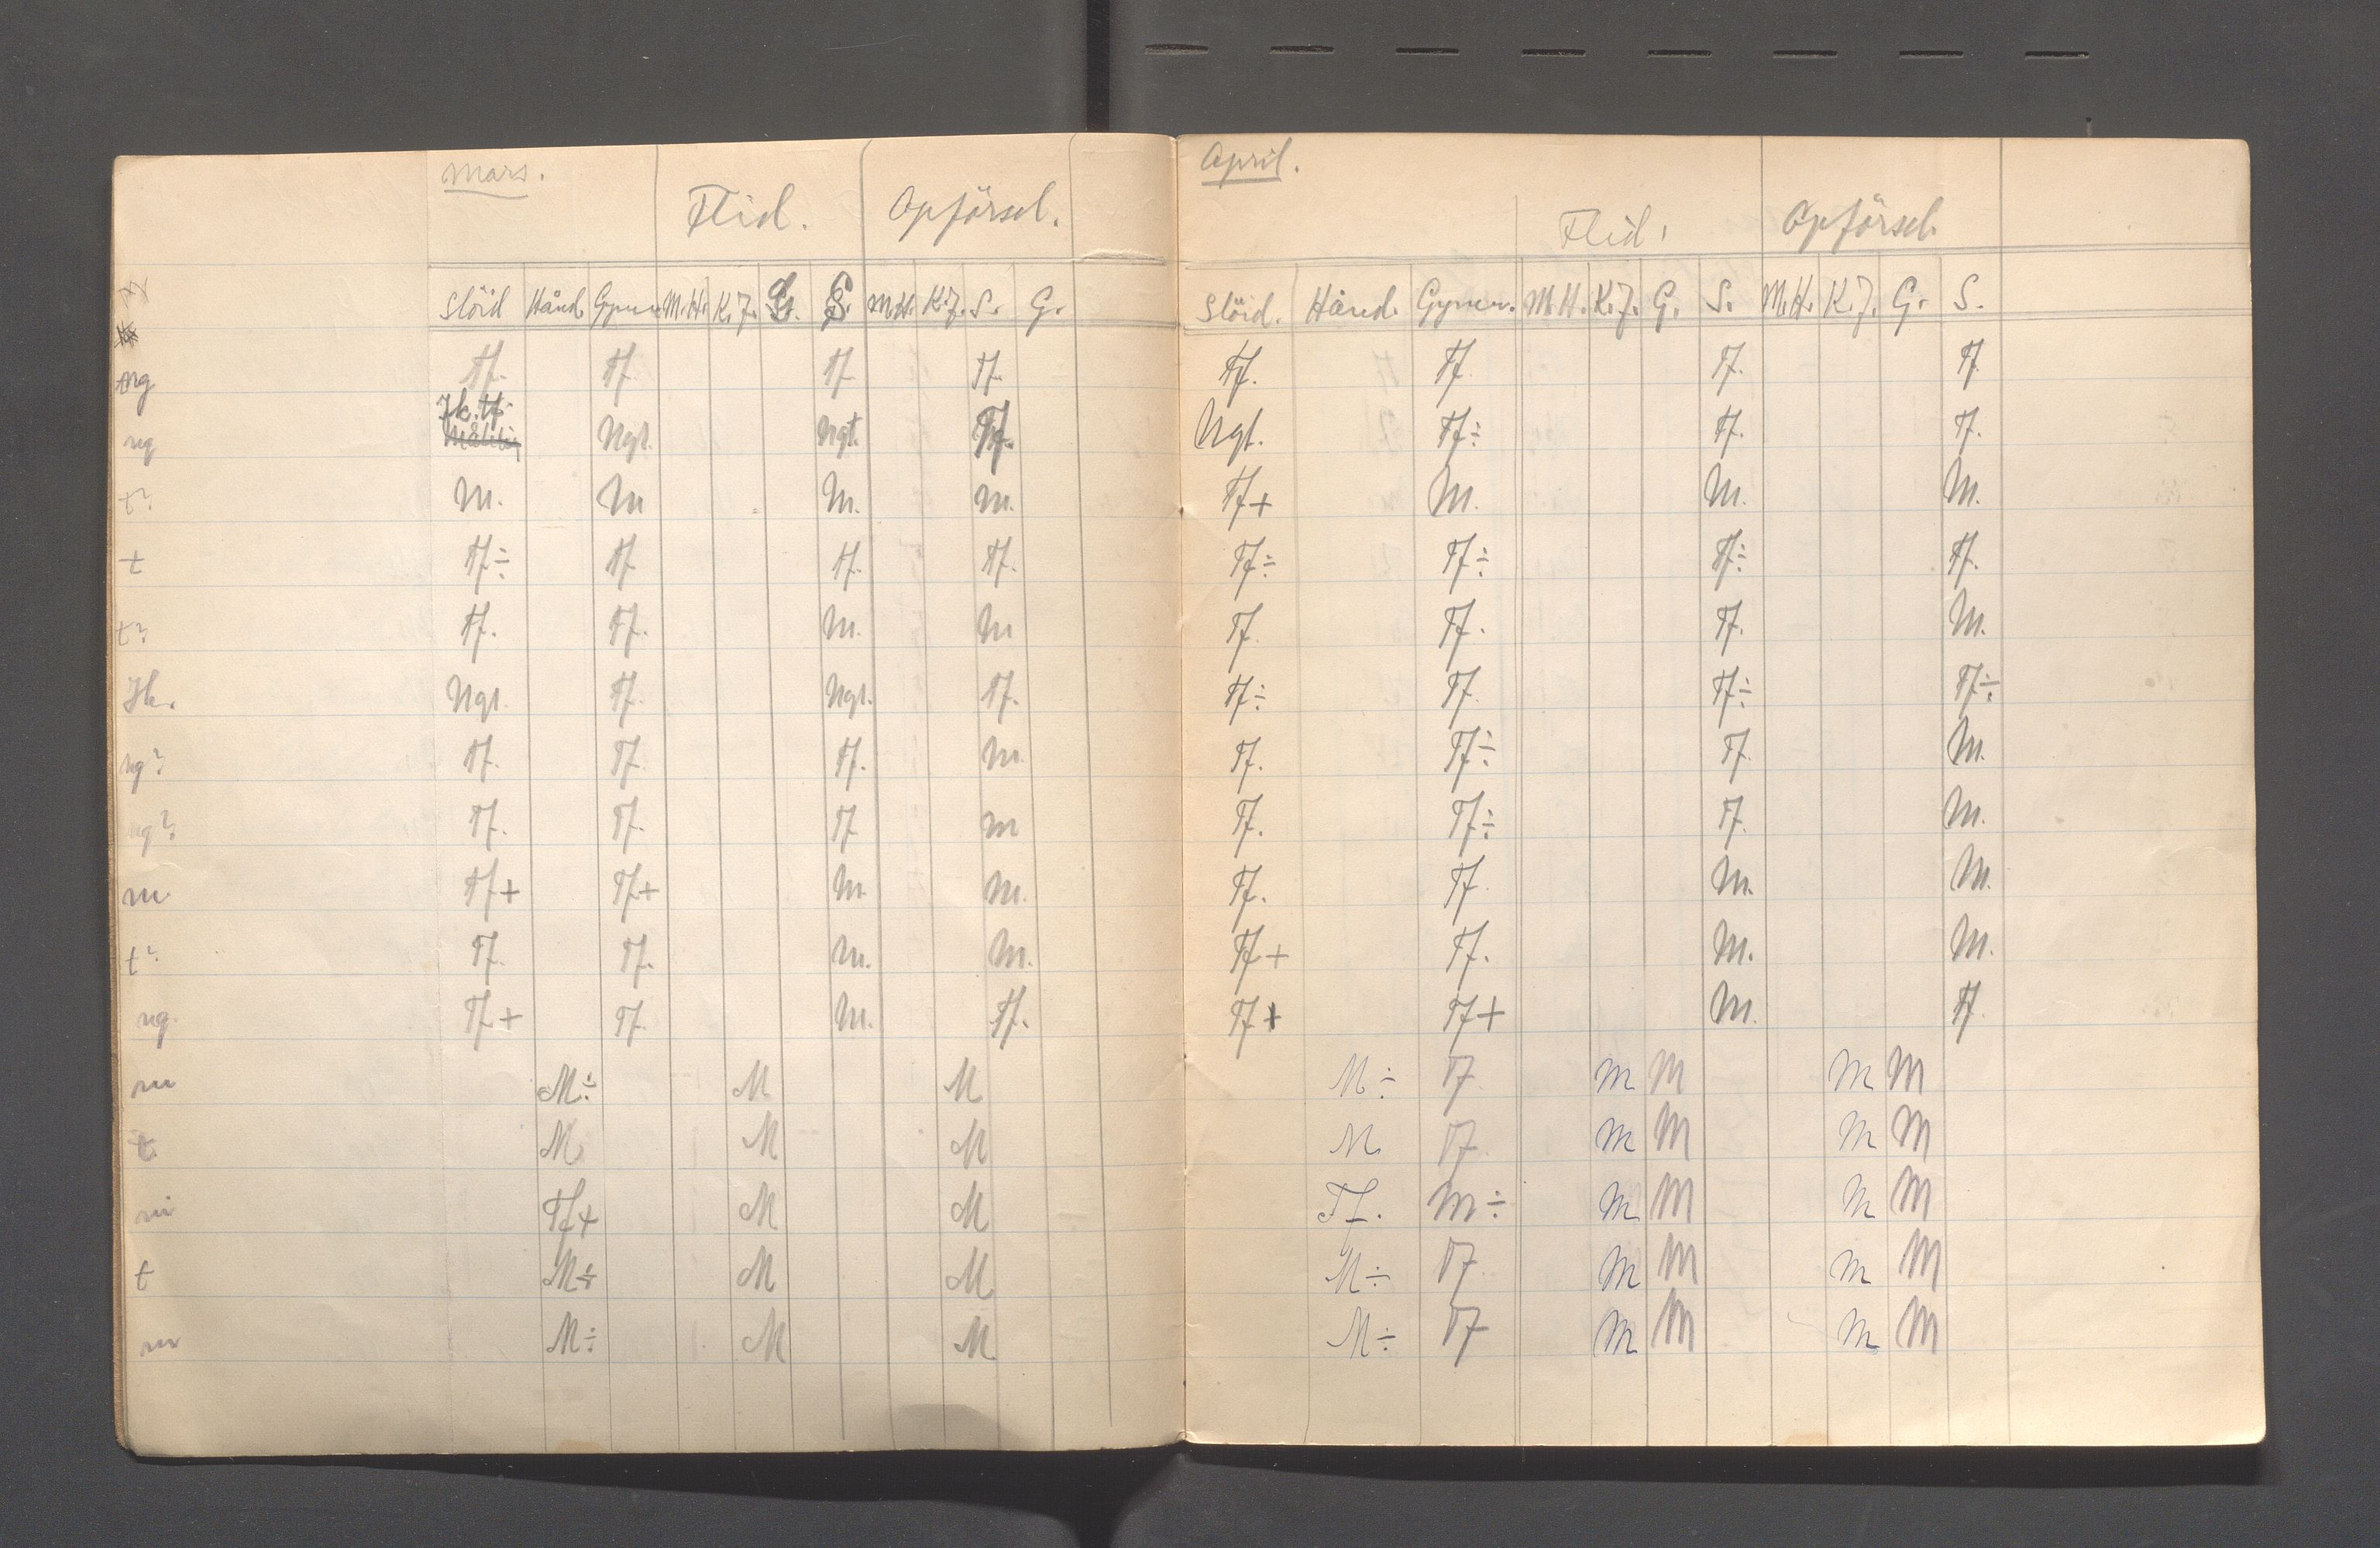 Mars.
Flid. Opförsel.
Slöid Hånd. Gymn. M.H. K.J. G. S. M.H. K.J. S. G.
ng Tf. Tf. Tf. Tf.
Jk. tf.
ng Ngt. Ngt. Tf.
t? M. M M. M.
t Tf÷ Tf Tf. Tf.
t? Tf. Tf. M. M
Jk. Ngt. Tf. Ngt. Tf.
ng? Tf. Tf. Tf. M
ng? Tf. Tf. Tf M
m Tf+ Tf+ M. M.
t? Tf. Tf. M. M.
ng. Tf+ Tf M. Tf.
m M÷ M M
t. M M M
m Tf+ M M
t M÷ M M
m M÷ M M
April.
Flid. Opförsel.
Slöid. Hånd. Gymn. M.H. K.J. G. S. M.H. K.J. G. S.
Tf. Tf Tf. Tf
Ngt. Tf÷ Tf. Tf.
Tf+ M. M. M.
Tf÷ Tf÷ Tf÷ Tf.
Tf Tf. Tf. M.
Tf÷ Tf Tf÷ Tf÷
Tf. Tf÷ Tf M.
Tf. Tf÷ Tf M.
Tf. Tf M. M.
Tf+ Tf. M. M.
Tf+ Tf+ M. Tf
M÷ Tf M M M M
M Tf M M M M
Tf. M÷ M M M M
M÷ Tf M M M M
M÷ Tf M M M M